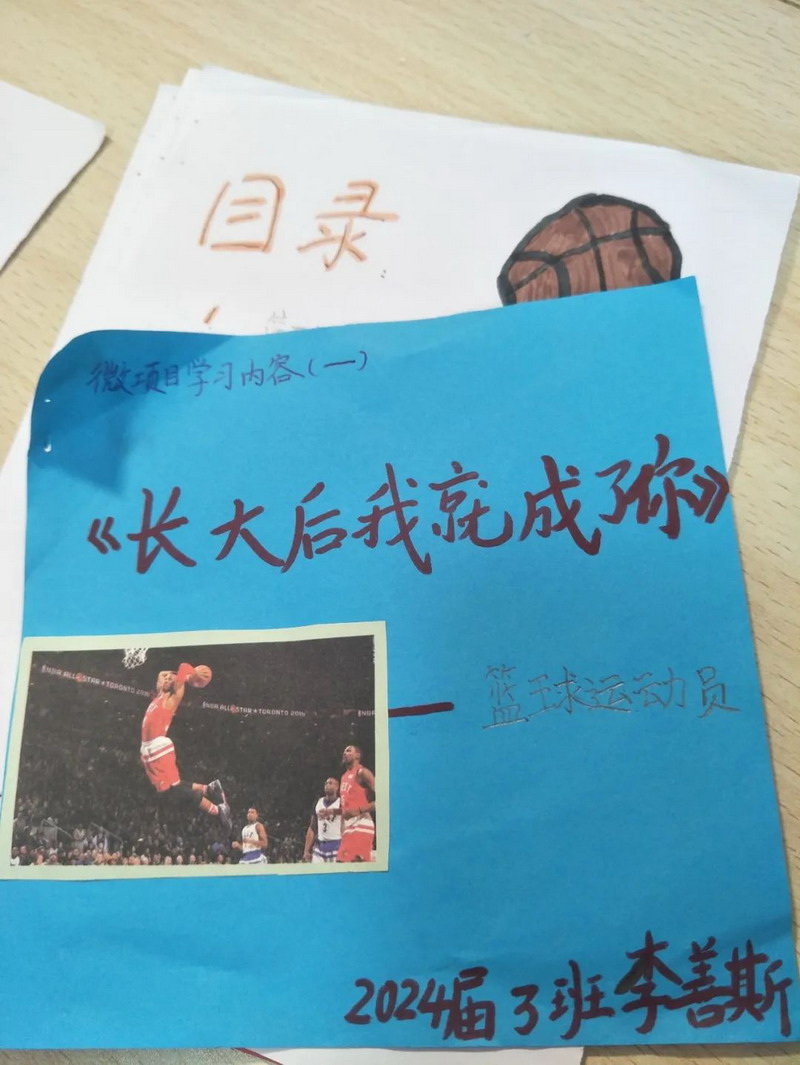 目录
微项目学习内容(一)
《长大后我就成了你》
NBA ALL-STAR ★ TORONTO 2016
NBA ALL-STAR ★ TORONTO 2016
篮球运动员
2024届3班李善斯